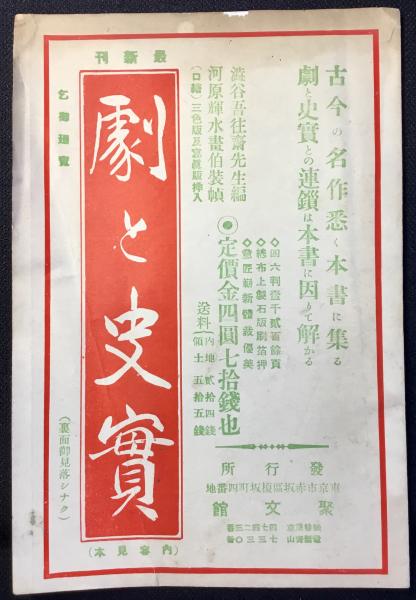 古今の名作悉く本書に集る
劇と史實との連鎖は本書に因りて解かる
◆四六判壹千貳百餘頁
◆總布上製石版刷箔押
◆意匠嶄新體裁優美
◉定價金四圓七拾錢也
送料
内地貳拾四錢
領土五拾五錢
澁谷吾往齋先生編
河原輝水畫伯裝幀
(口繪)三色版及寫眞版挿入
發行所
東京市赤坂區榎坂町四番地
聚文館
最新刊
乞御廻覽
劇と史實
(内容見本)
(裏面御見落シナク)